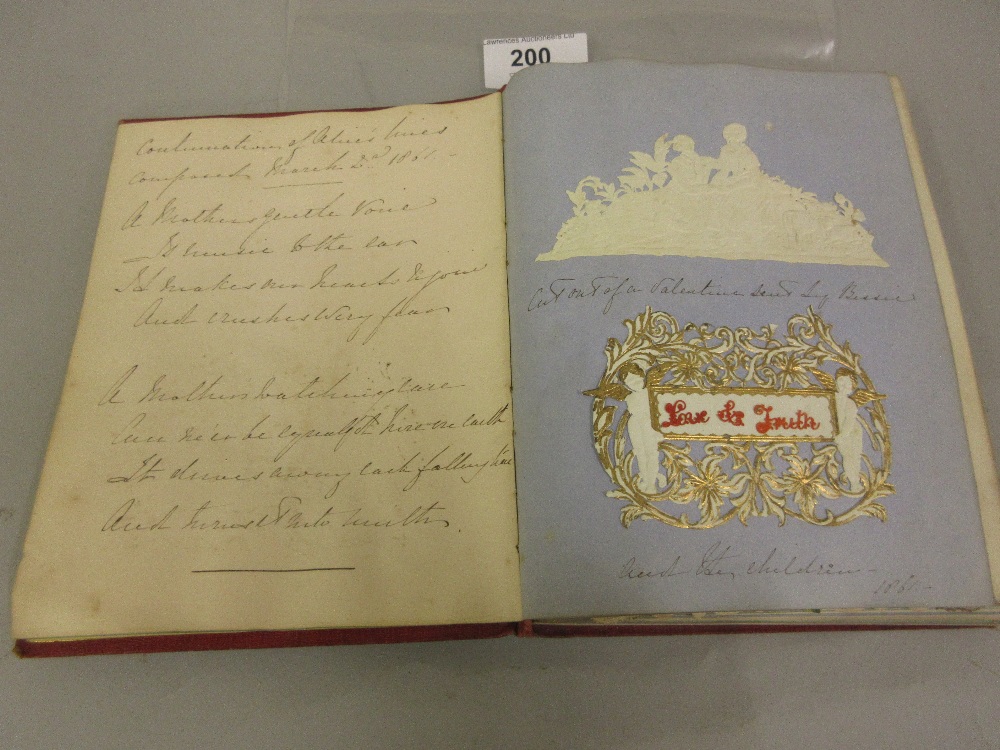 Lawrences Auctioneers Ltd
200
Continuation of Alice's lines
composed March 2nd 1861 -
A Mothers gentle Voice
- Is music to the ear
It makes our hearts rejoice
And crushes every fear
A Mothers watching care
Can ne'er be equall'd here on earth
It drives away each falling tear
And turns it into mirth.
Cut out of a Valentine sent by Bessie
Love & Truth
and the children -
1861 -